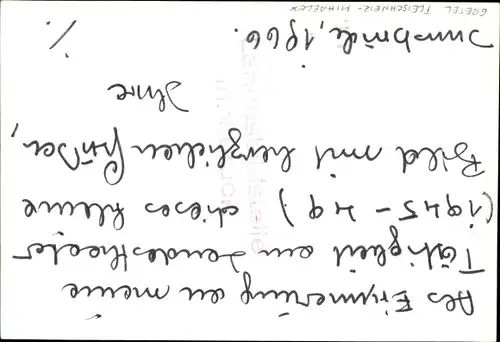 Als Erinnerung an meine
Tätigkeit am Landestheater
(1945-49) dieses kleine
Bild mit herzlichen Grüßen,
Ihre
Innsbruck, 1966. ./.
GRETEL FLEISCHNEIZ-MIHAELEK